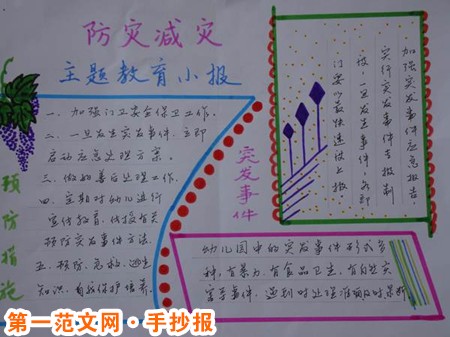 防灾减灾
主题教育小报
一、加强门卫安全保卫工作。
二、一旦发生突发事件，立即
启动应急处理方案。
三、做好善后处理工作。
四、定期对幼儿进行
宣传教育，传授有关
预防突发事件方法。
五、预防、急救、逃生
知识、自然保护培养。
预防措施
突发事件
加强突发事件应急报告
实行突发事件专报制
度，一旦发生事件，立即
门要以最快速度上报
幼儿园中的突发事件形式多
种，有暴力、有食品卫生、有自然灾
害等事件，
第一范文网·手抄报